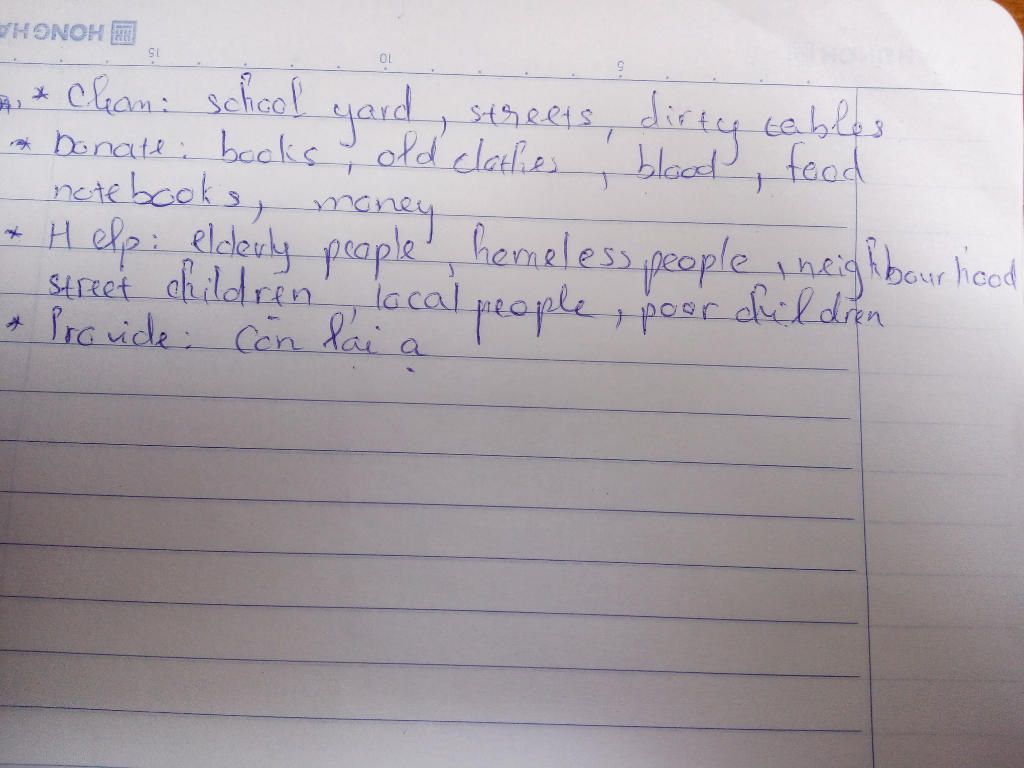 HONG HA
15 10 5
* Clean: school yard, streets, dirty tables
* Donate: books, old clothes, blood, food
notebooks, money
* Help: elderly people, homeless people, neighbourhood
street children, local people, poor children
* Provide: Còn lại ạ